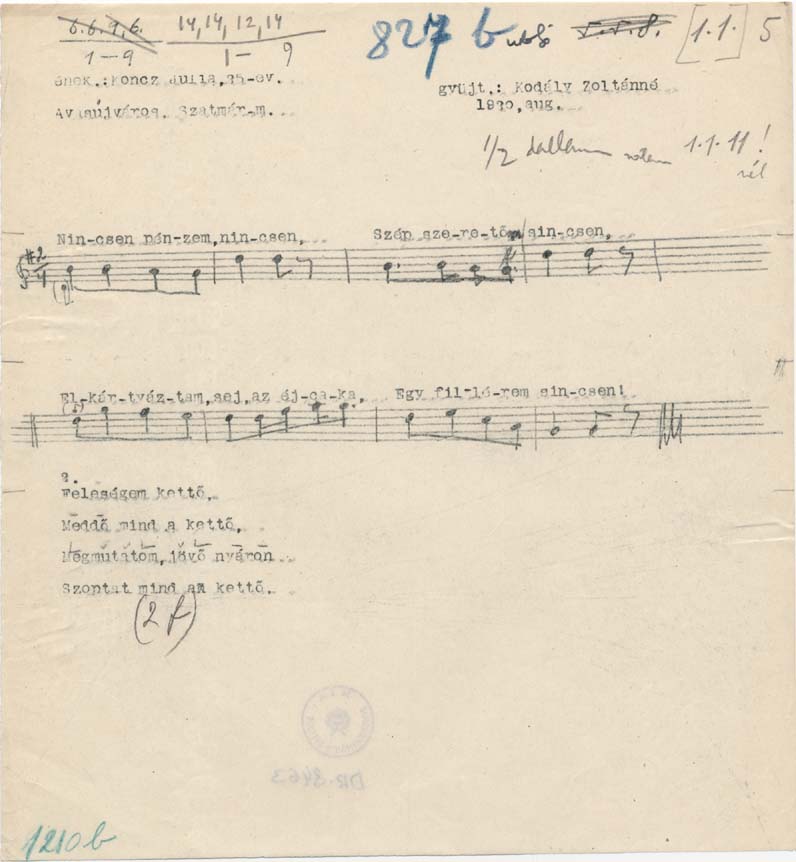 6.6.9.6. 14,14,12,14 827 b utolsó 5.5.8. [1.1.] 5
1-9 1-9
ének.: Koncz Julia, 35-év. gyüjt.: Kodály Zoltánné
Avasújváros. Szatmár-m. 1920, aug.
1/2 dallam 1.1.11!
nél
Nin-csen pén-zem, nin-csen, Szép sze-re-tőm sin-csen,
2/4
El-kár-tyáz-tam, sej, az éj-ca-ka, Egy fil-lé-rem sin-csen!
2.
Feleségem kettő,
Meddő mind a kettő,
Megmútátom, jövő nyáron
Szoptat mind a kettő.
(2 f)
DR-3463
1210 b